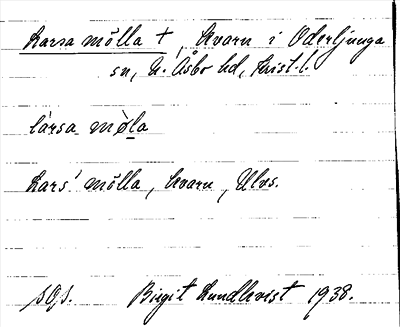 Larsa mölla †, kvarn i Oderljunga
sn, N. Åsbo hd, Krist. l.
làrsa mø̀la
Lars' mölla, kvarn, Ulvs.
sgs. Birgit Lundkvist 1938.